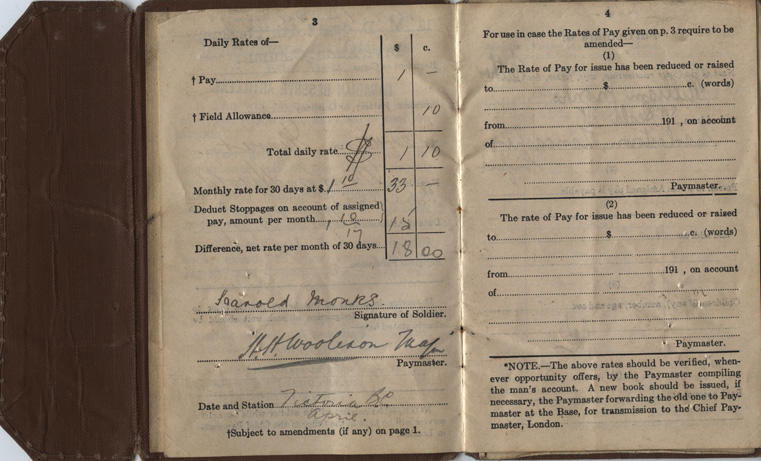 3
Daily Rates of—
$ c.
† Pay 1 —
† Field Allowance 10
Total daily rate $ 1 10
Monthly rate for 30 days at $ 1 10 33 —
Deduct Stoppages on account of assigned
pay, amount per month 15
Difference, net rate per month of 30 days 18 00
Harold Monks
Signature of Soldier.
Paymaster.
Date and Station Victoria Bc
April.
†Subject to amendments (if any) on page 1.
4
For use in case the Rates of Pay given on p. 3 require to be
amended—
(1)
The Rate of Pay for issue has been reduced or raised
to $ c. (words)
from 191 , on account
of
Paymaster.
(2)
The rate of Pay for issue has been reduced or raised
to $ c. (words)
from 191 , on account
of
Paymaster.
*NOTE.—The above rates should be verified, when-
ever opportunity offers, by the Paymaster compiling
the man's account. A new book should be issued, if
necessary, the Paymaster forwarding the old one to Pay-
master at the Base, for transmission to the Chief Pay-
master, London.